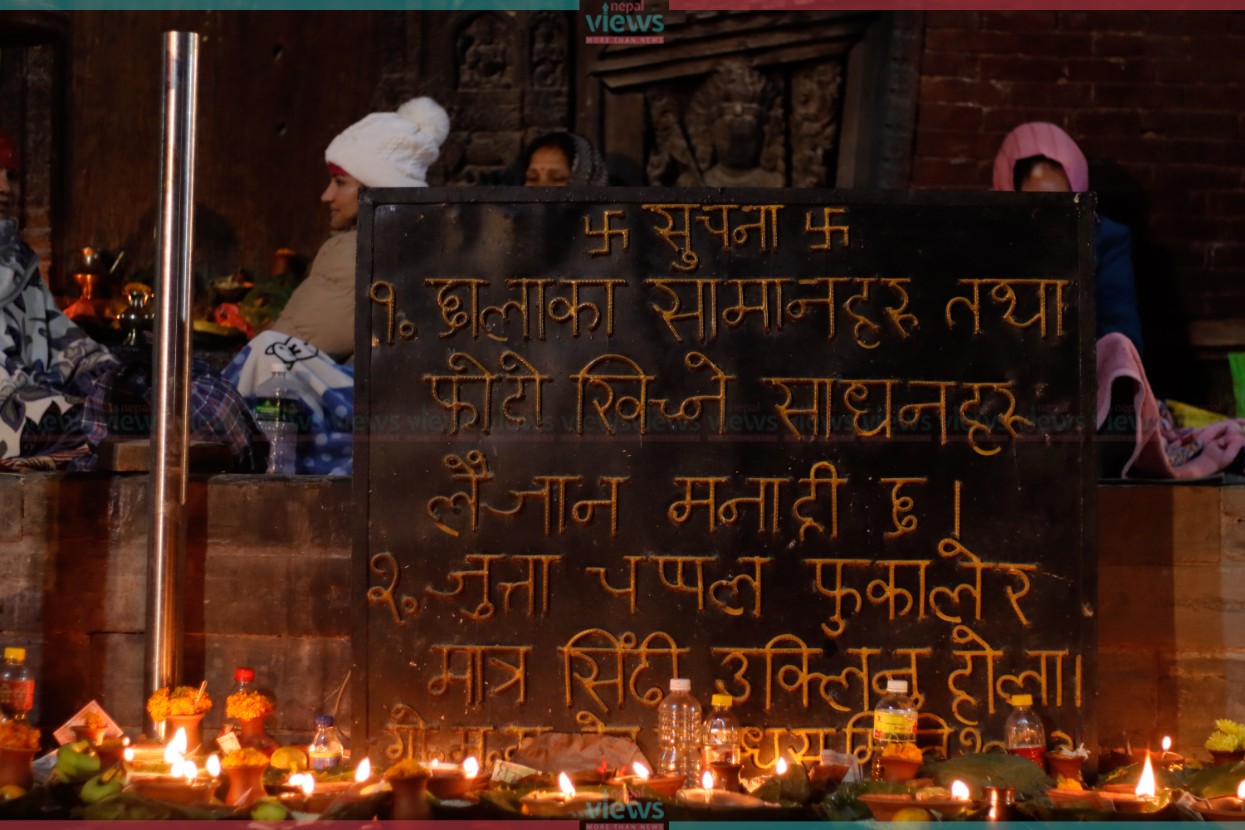 nepal
views
MORE THAN NEWS
卐 सुचना 卐
१. छालाका सामानहरु तथा
फोटो खिच्ने साधनहरु
लैजान मनाही छ ।
२. जुत्ता चप्पल फुकालेर
मात्र सिंढी उक्लिनु होला।
views
MORE THAN NEWS